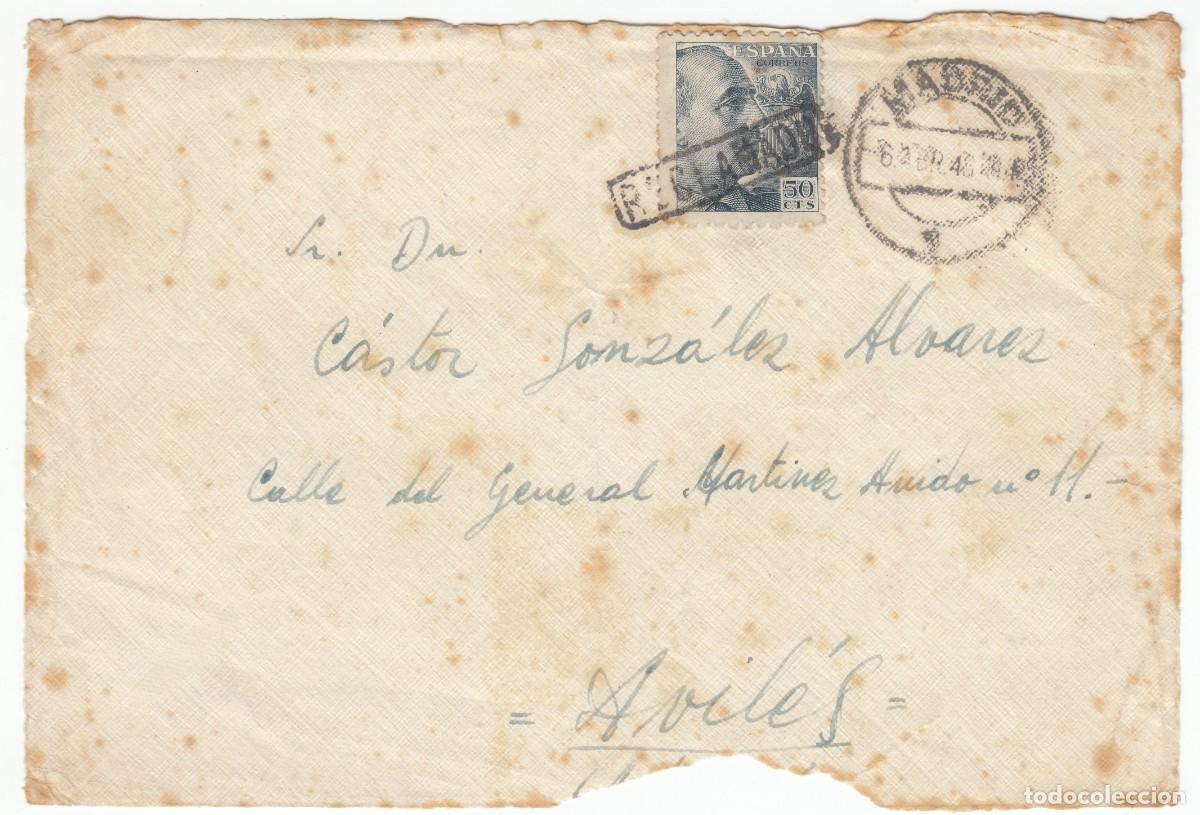 ESPAÑA
CORREOS
50
CTS
MADRID
Sr. Dn.
Cástor González Alvarez
Calle del General Martinez Anido nº 11.-
= Avilés =
todocoleccion